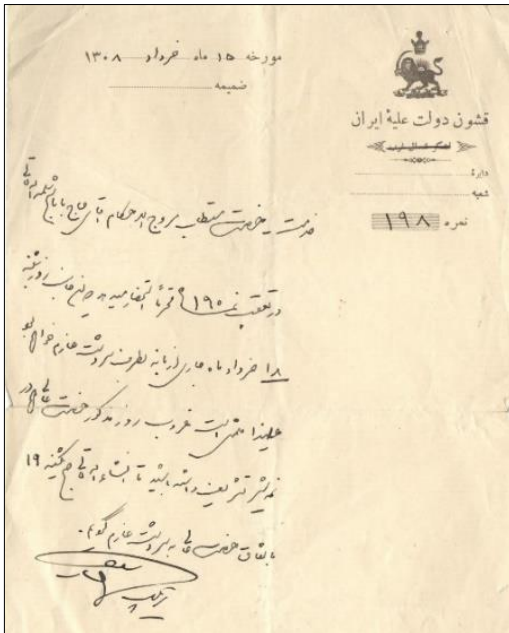 مورخه ۱۵ ماه خرداد ۱۳۰۸
ضمیمه
قشون دولت علیهٔ ایران
دایرهٔ
شعبه
نمره ۱۹۸
خدمت حضرت مستطاب مروج الاحکام آقای حاج
در تعقیب ۱۹۵ محترماً روز شنبه
۱۸ خرداد ماه جاری از بانه بطرف سردشت عازم خواهم بود
علیهذا متمنی است غروب روز مذکور حضرتعالی در
تشریف داشته باشید تا انشاءالله صبح یکشنبه ۱۹
باتفاق حضرتعالی به سردشت عازم گردیم.